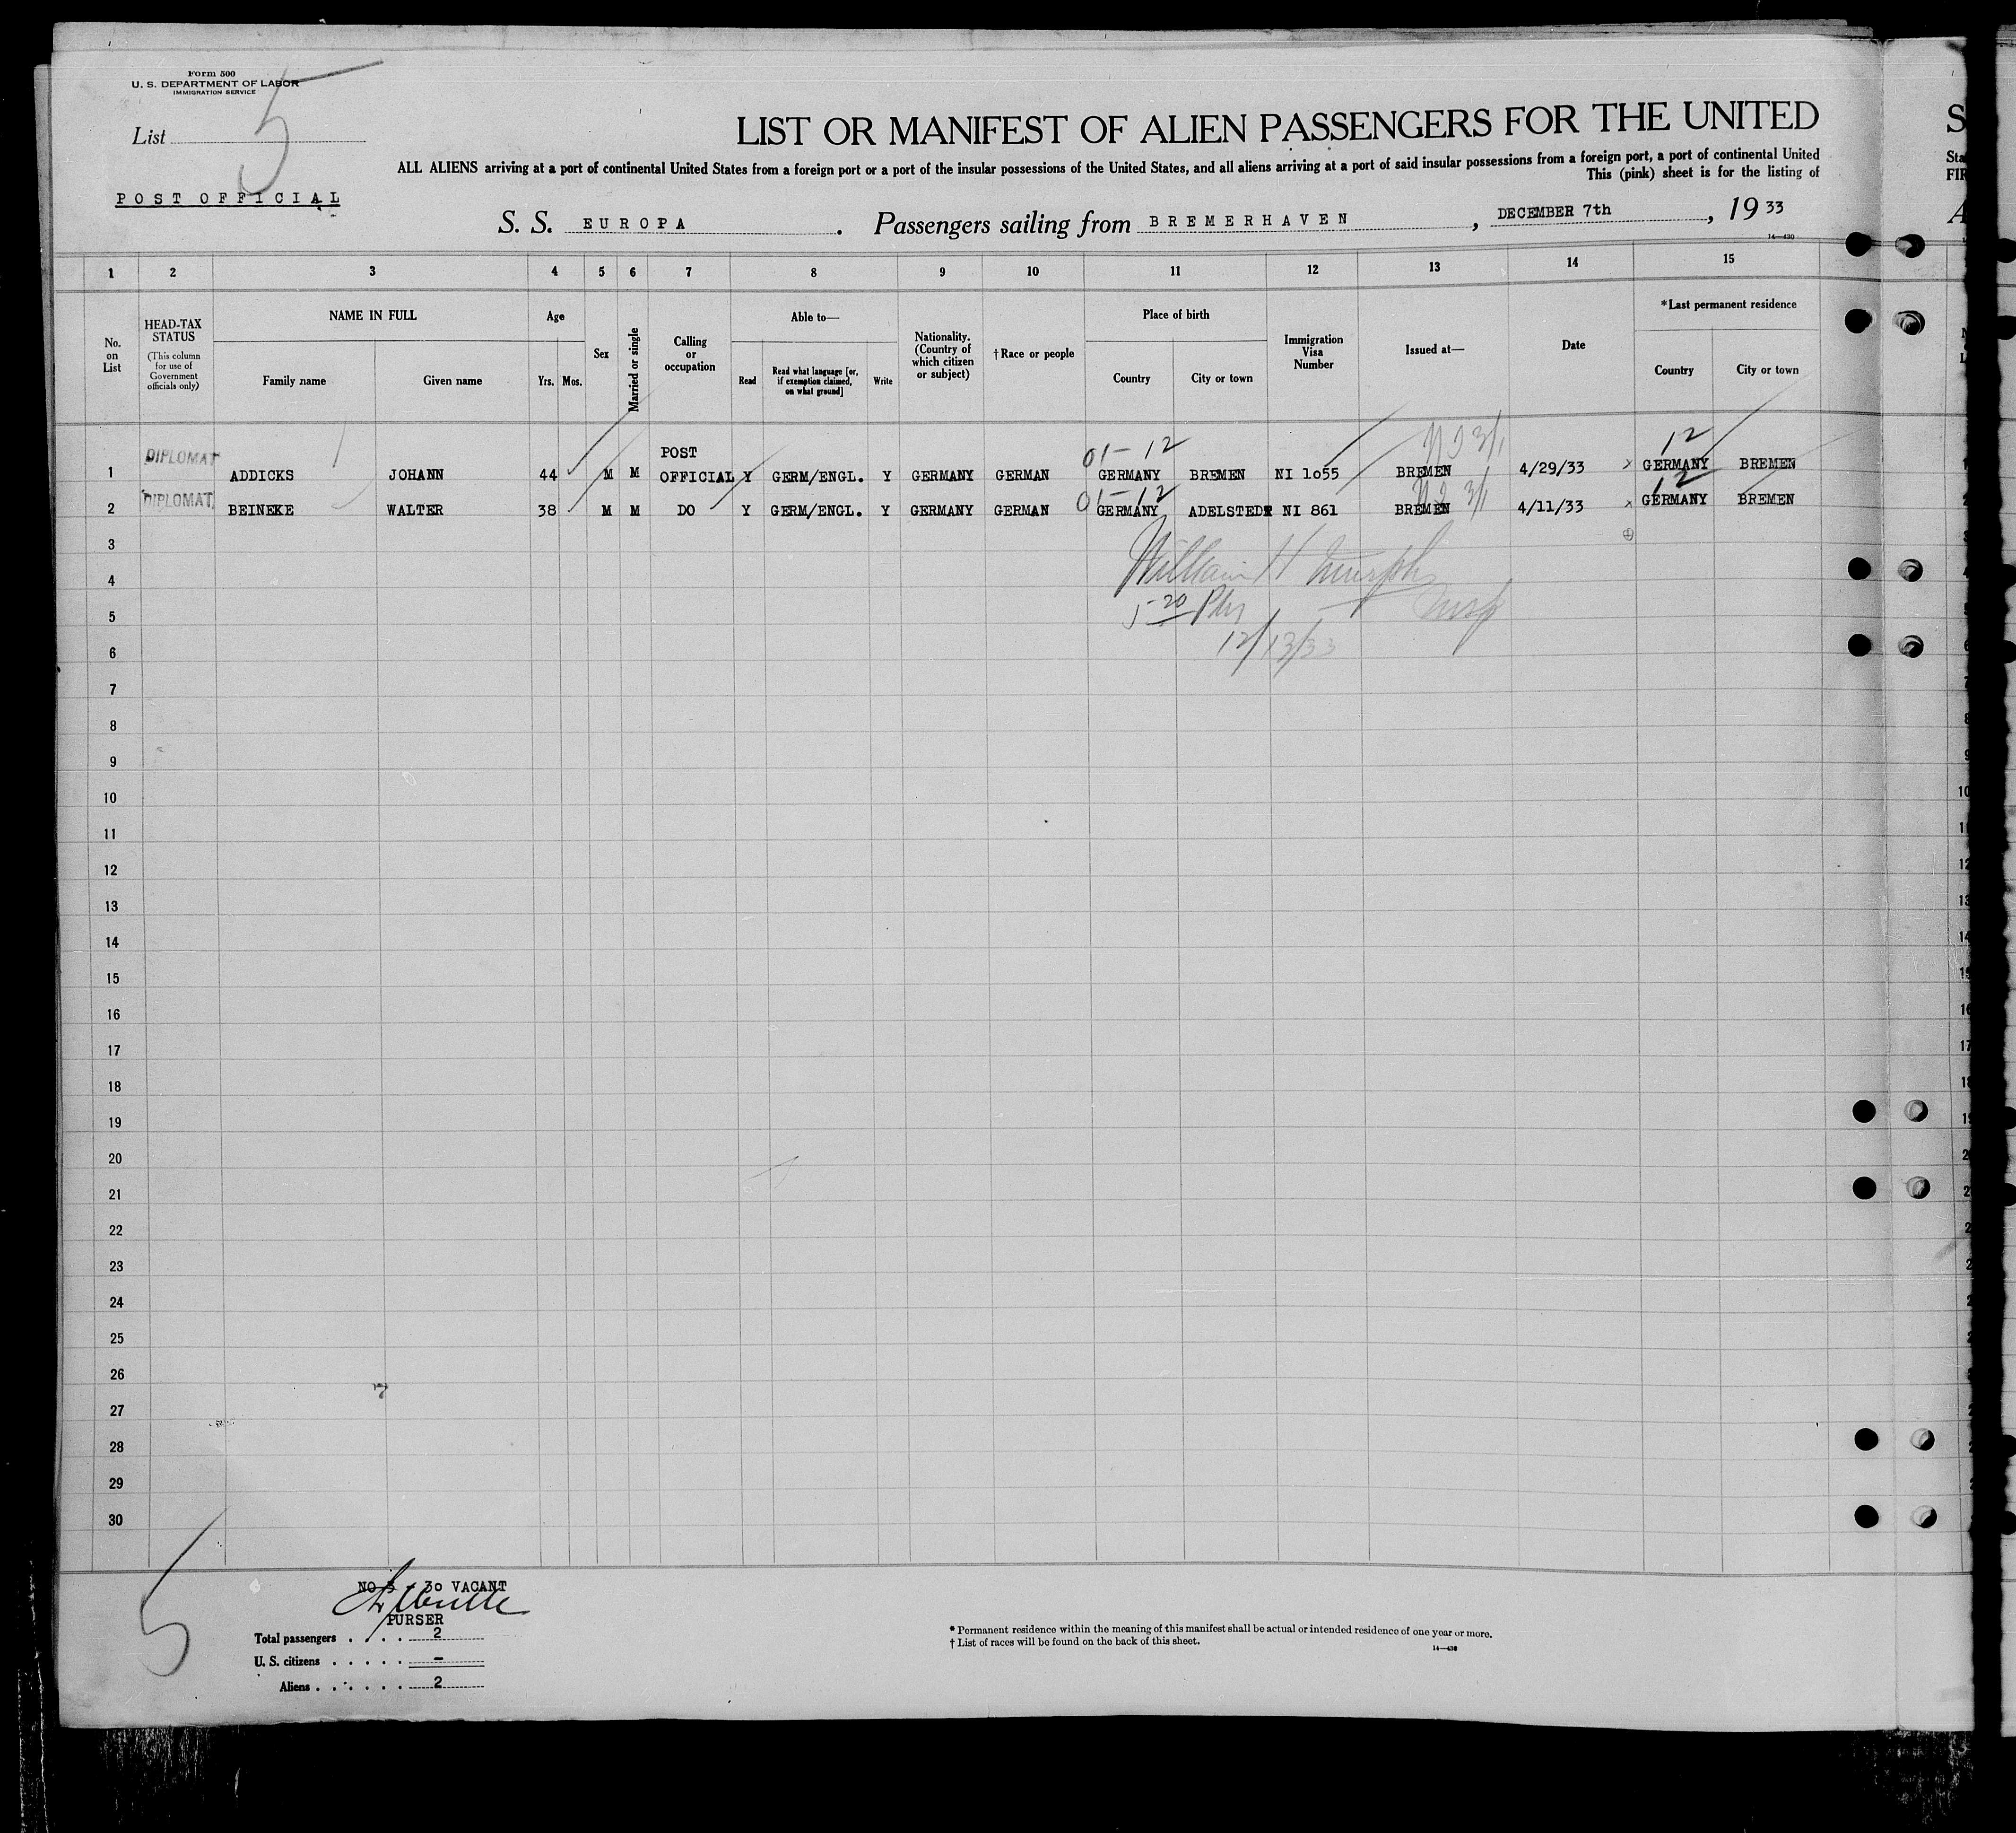 Form 500
U. S. DEPARTMENT OF LABOR
IMMIGRATION SERVICE
List 5
LIST OR MANIFEST OF ALIEN PASSENGERS FOR THE UNITED
ALL ALIENS arriving at a port of continental United States from a foreign port or a port of the insular possessions of the United States, and all aliens arriving at a port of said insular possessions from a foreign port, a port of continental United
This (pink) sheet is for the listing of
POST OFFICIAL
S. S. EUROPA. Passengers sailing from BREMERHAVEN, DECEMBER 7th, 19 33
14—430
1 2 3 4 5 6 7 8 9 10 11 12 13 14 15
No. on List
HEAD-TAX STATUS
(This column for use of Government officials only)
NAME IN FULL
Family name Given name
Age
Yrs. Mos.
Sex
Married or single
Calling or occupation
Able to—
Read
Read what language [or, if exemption claimed, on what ground]
Write
Nationality. (Country of which citizen or subject)
†Race or people
Place of birth
Country City or town
Immigration Visa Number
Issued at—
Date
*Last permanent residence
Country City or town
01-12 12
1 DIPLOMAT ADDICKS JOHANN 44 M M POST OFFICIAL Y GERM/ENGL. Y GERMANY GERMAN GERMANY BREMEN NI 1055 BREMEN 4/29/33 GERMANY BREMEN
01-12 12
2 DIPLOMAT BEINEKE WALTER 38 M M DO Y GERM/ENGL. Y GERMANY GERMAN GERMANY ADELSTEDT NI 861 BREMEN 4/11/33 GERMANY BREMEN
3
4 William H Murphy
5 5-20 PM Insp
6 12/13/33
7
8
9
10
11
12
13
14
15
16
17
18
19
20
21
22
23
24
25
26
27
28
29
30
5
NO 3 - 30 VACANT
PURSER
Total passengers . . . . 2
U. S. citizens . . . . . —
Aliens . . . . . . 2
* Permanent residence within the meaning of this manifest shall be actual or intended residence of one year or more.
† List of races will be found on the back of this sheet.
14—430